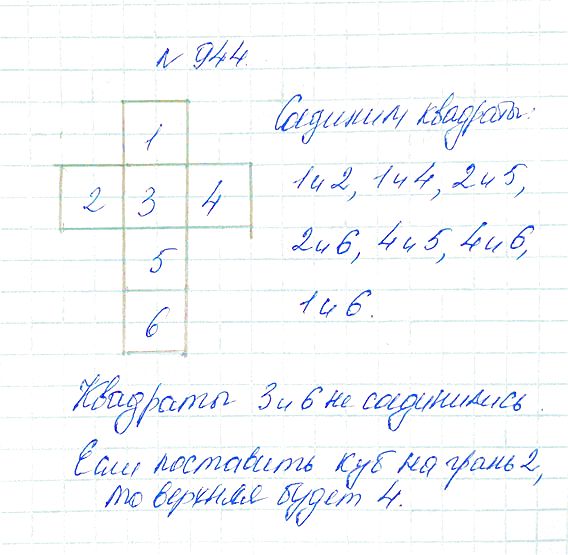 N 944.
Соединим квадраты:
1
1 и 2, 1 и 4, 2 и 5,
2 3 4
2 и 6, 4 и 5, 4 и 6,
5
1 и 6.
6
Квадраты 3 и 6 не соединились.
Если поставить куб на грань 2,
то верхняя будет 4.